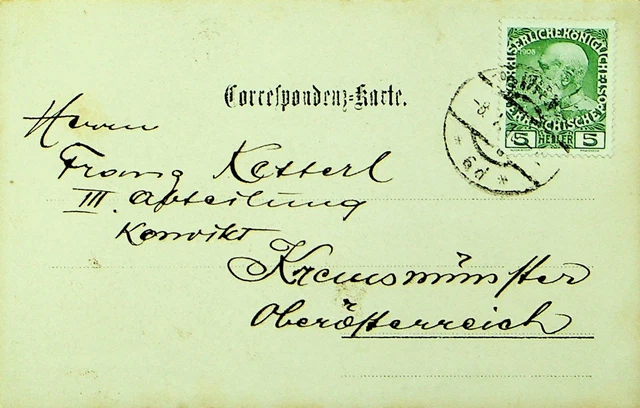 Correspondenz-Karte.
KAISERLICHEKÖNIGLICHE
1908
ÖSTERREICHISCHE POST
5 HELLER 5
-8.
* 6d *
Herrn
Franz Ketterl
III. Abteilung
Konvikt
Kremsmünster
Oberösterreich